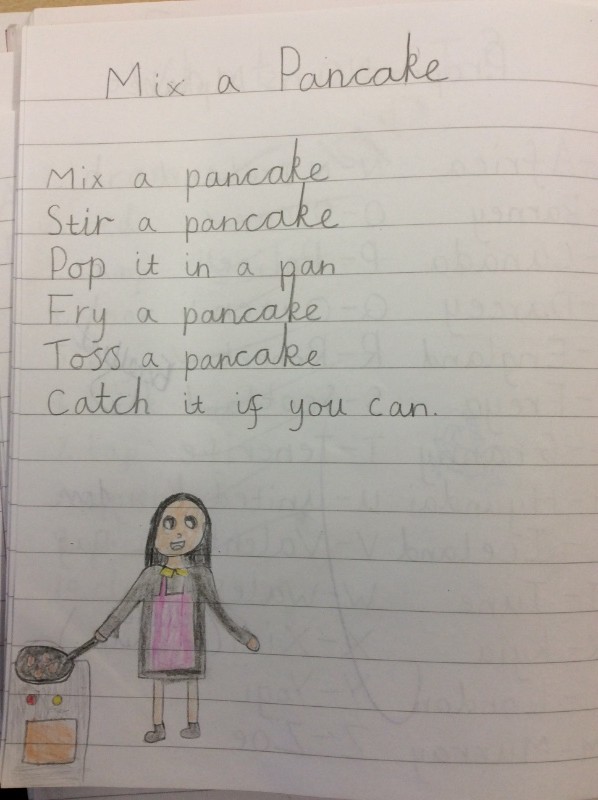 Mix a Pancake
Mix a pancake
Stir a pancake
Pop it in a pan
Fry a pancake
Toss a pancake
Catch it if you can.